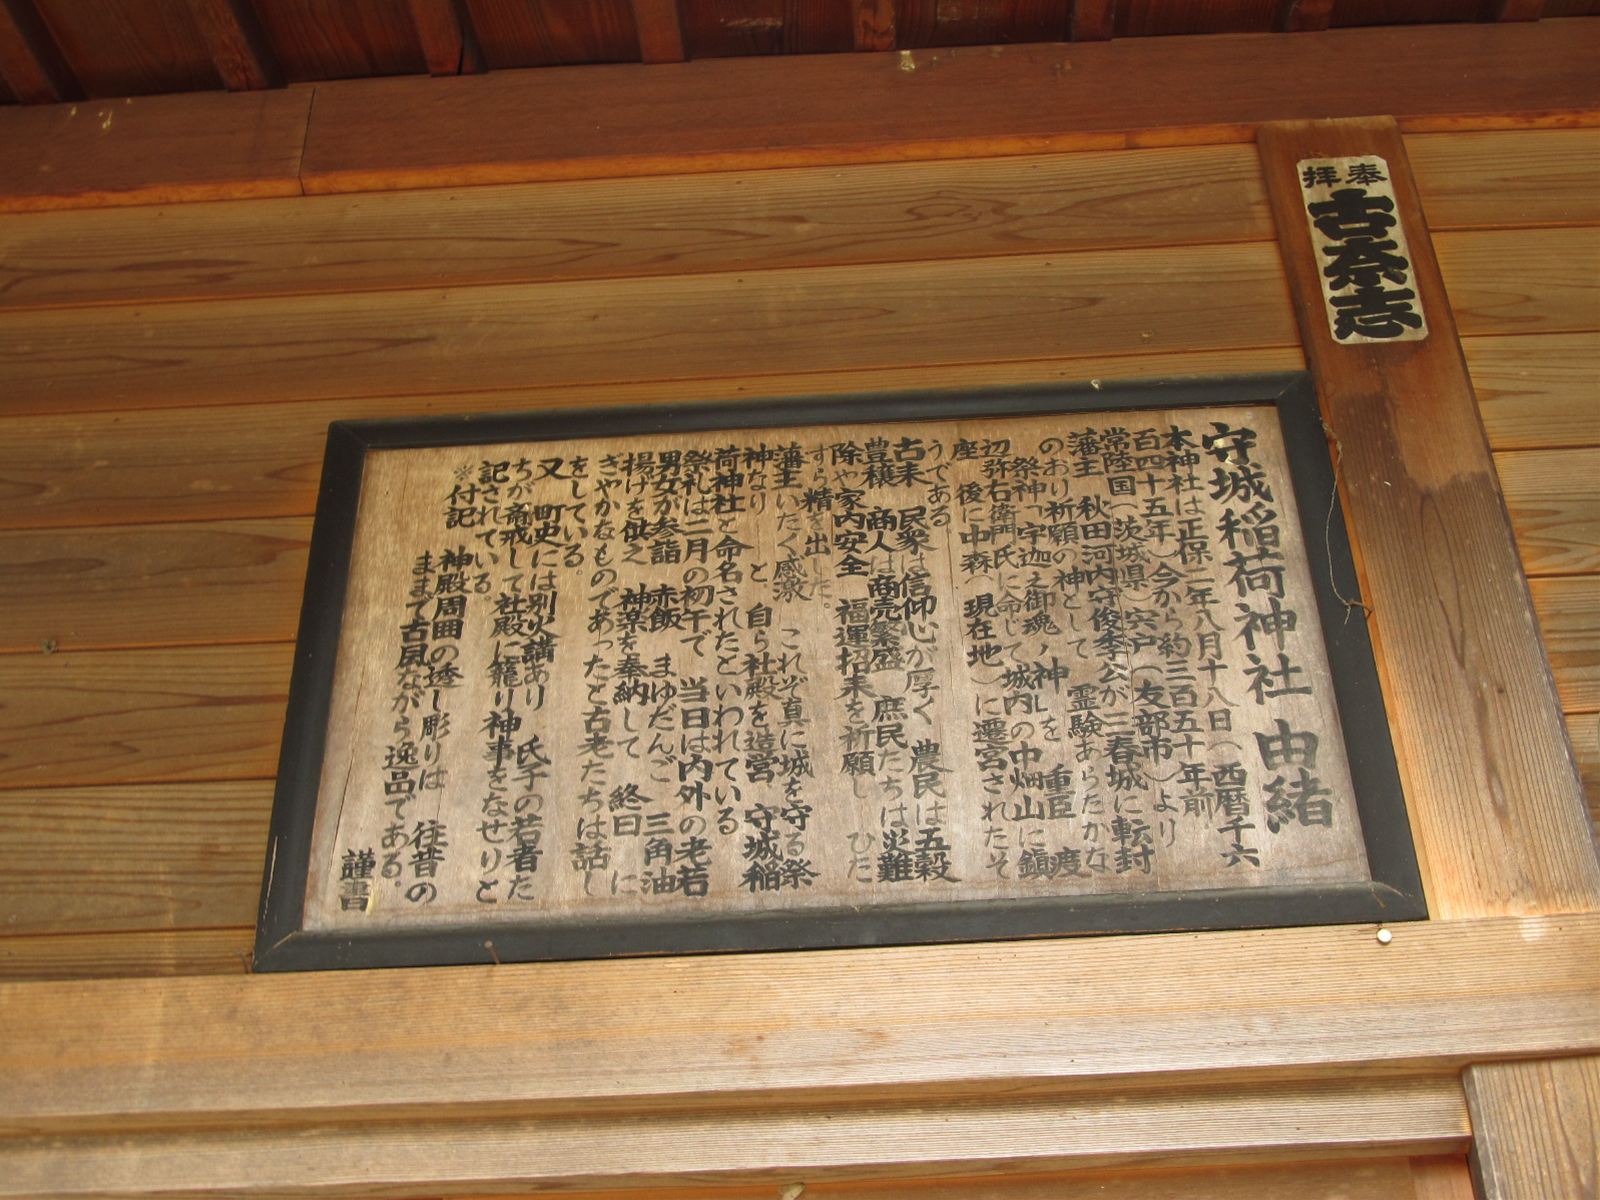 奉拝
古奈志
守城稲荷神社 由緒
本神社は正保二年八月十八日(西暦千六
百四十五年)今から約三百五十年前
常陸国(茨城県)宍戸(友部市)より
藩主 秋田河内守俊季公が三春城に転封
のおり祈願の神として 霊験あらたかな
祭神「宇迦之御魂ノ神」を 重臣 渡
辺弥右衛門氏に命じて城内の中畑山に鎮
座 後に中森(現在地)に遷宮されたそ
うである
古来 民衆は信仰心が厚く 農民は五穀
豊穣 商人は商売繁盛 庶民たちは災難
除や家内安全 福運招来を祈願し ひた
すら精を出した。
藩主いたく感激 これぞ真に城を守る祭
神なり と、自ら社殿を造営、守城稲
荷神社と命名されたといわれている
祭礼は二月の初午で 当日は内外の老若
男女が参詣 赤飯 まゆだんご 三角油
揚げを供え 神楽を奉納して 終日 に
ぎやかなものであったと古老たちは話し
をしている。
又 町史には別火講あり 氏子の若者た
ちが斎戒して社殿に籠り神事をなせりと
記されている。
※付記 神殿周囲の透し彫りは 往昔の
ままで古風ながら逸品である。
謹書